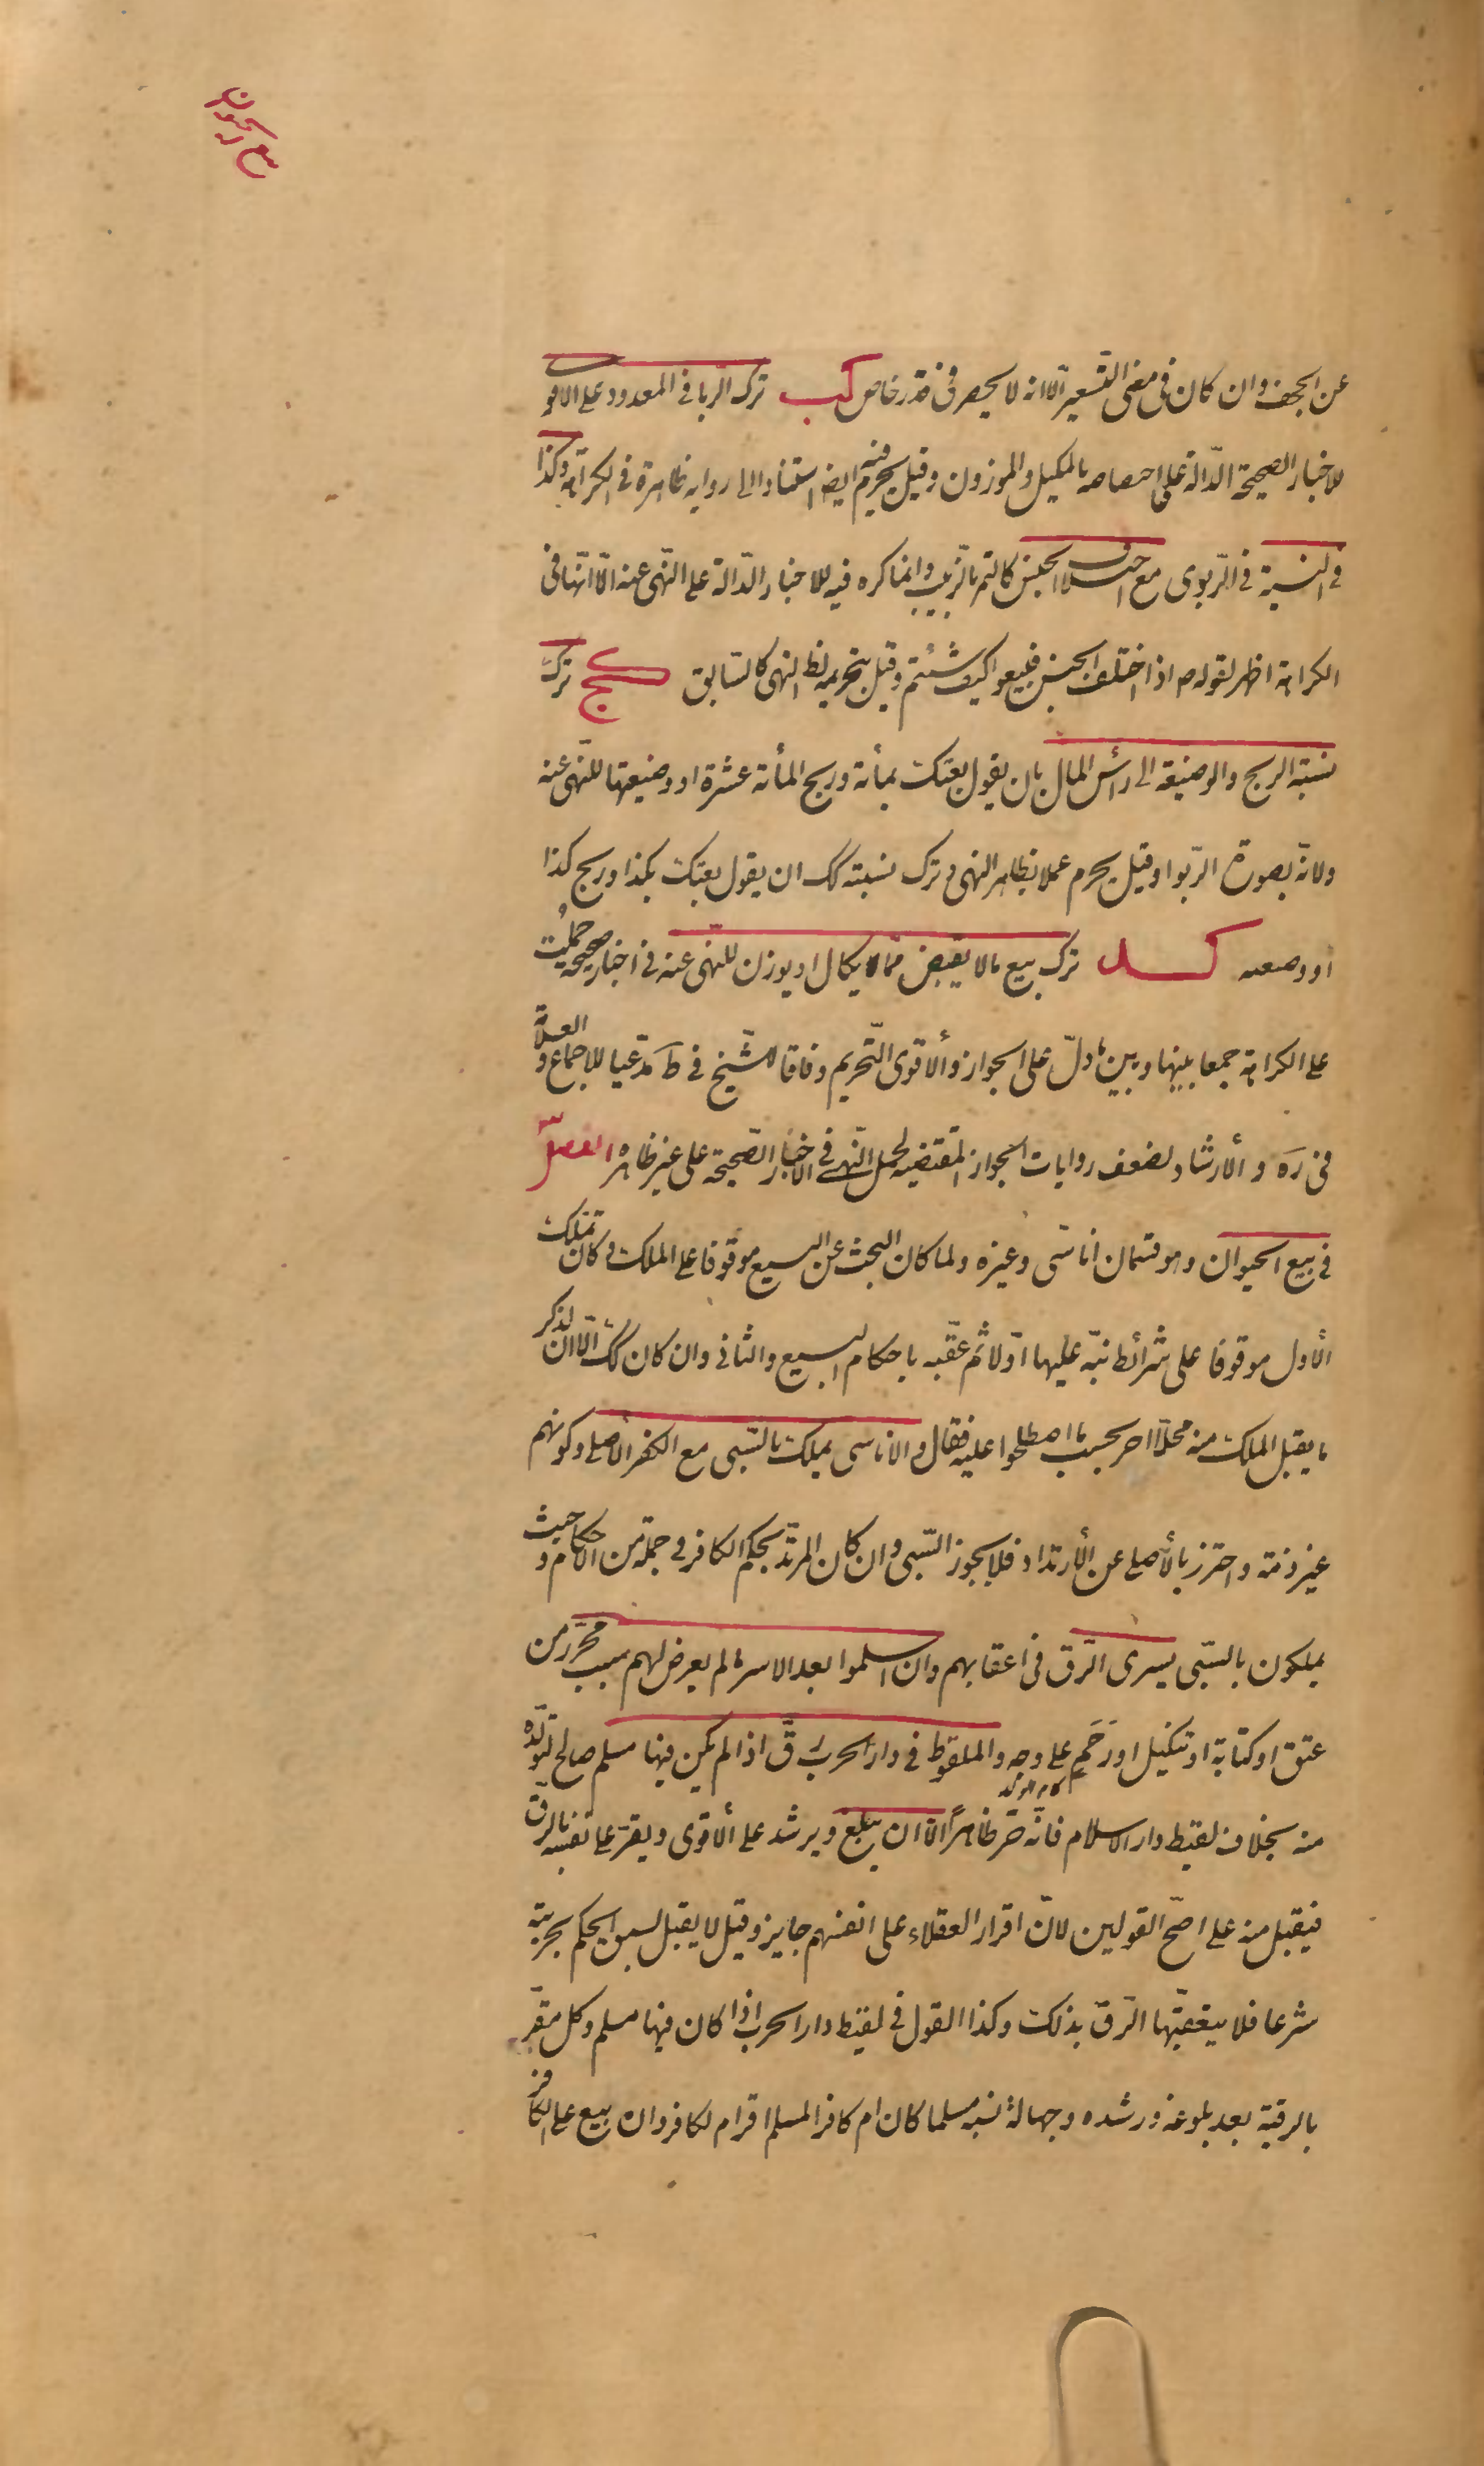 بيع الحيوان
عن المجحف وان كان فى معنى التسعير الّا انه لا يحصر فى قدر خاص كب ترك الرّبا فى المعدود على الاقوى
للاخبار الصحيحة الدّالة على اختصاصه بالمكيل والموزون وقيل يحرم فيه ايضا استنادا الى رواية ظاهرة فى الكراهة وكذا
فى النسية فى الرّبوى مع اختلاف الجنس كالتمر بالزبيب وانما كره فيه للاخبار الدّالة على النّهى عنه الّا انّها فى
الكراهة اظهر لقوله ص اذا اختلف الجنس فبيعوا كيف شئتم وقيل بتحريمه لظ النهى كالسّابق كج ترك
نسبة الربح والوضيعة الى رأس المال بان يقول بعتك بمأة وربح المأة عشرة او وضيعتها للنّهى عنه
ولانّه بصورة الرّبوا وقيل يحرم عملا بظاهر النهى وترك نسبته كك ان يقول بعتك بكذا وربح كذا
او وضيعه كد ترك بيع ما لا يقبض ممّا يكال او يوزن للنّهى عنه فى اخبار صحيحة حملت
على الكراهة جمعا بينها وبين ما دلّ على الجواز والأقوى التّحريم وفاقا للشّيخ فى ط مدّعيا للاجماع والعلّامة
فى ره والأرشاد لضعف روايات الجواز المقتضية لحمل النّهى فى الاخبار الصّحيحة على غير ظاهره الفصل
فى بيع الحيوان وهو قسمان اناسّى وغيره ولما كان البحث عن البيع موقوفا على الملك وكان تملك
الأول موقوفا على شرائط نبّه عليها اوّلا ثم عقّبه باحكام البيع والثانى وان كان كك الّا ان لذكر
ما يقبل الملك منه محلّا اخر بحسب ما اصطلحوا عليه فقال والاناسى يملك بالسّبى مع الكفر الأصلى وكونهم
غير ذمة واحترز بالأصلى عن الأرتداد فلا يجوز السّبى وان كان المرتدّ بحكم الكافر فى جملة من الاحكام وحيث
يملكون بالسّبى يسرى الرّق فى اعقابهم وان اسلموا بعد الاسر ما لم يعرض لهم سبب محرّر من
عتق او كتابة او تنكيل او رحم على وجه والملقوط فى دار الحرب رقّ اذا لم يكن فيها مسلم صالح لتولّده
منه بخلاف لقيط دار الاسلام فانّه حرّ ظاهراً الّا ان يبلغ ويرشد على الأقوى ويقرّ على نفسه بالرقّ
فيقبل منه على اصحّ القولين لانّ اقرار العقلاء على انفسهم جايز وقيل لا يقبل لسبق الحكم بحريته
شرعا فلا يتعقّبها الرّق بذلك وكذا القول فى لقيط دار الحرب اذا كان فيها مسلم وكل مقرّ
بالرقية بعد بلوغه ورشده وجهالة نسبه مسلما كان ام كافرا لمسلم اقر ام لكافر وان بيع على الكافر